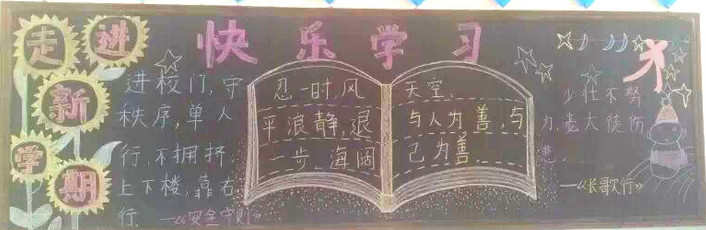 走进
新
学
期
快乐学习
进校门,守
秩序,单人
行,不拥挤.
上下楼,靠右
行.——《安全守则》
忍一时,风
平浪静,退
一步,海阔
天空.
与人为善,与
己为善.
少壮不努
力,老大徒伤
悲.
——《长歌行》